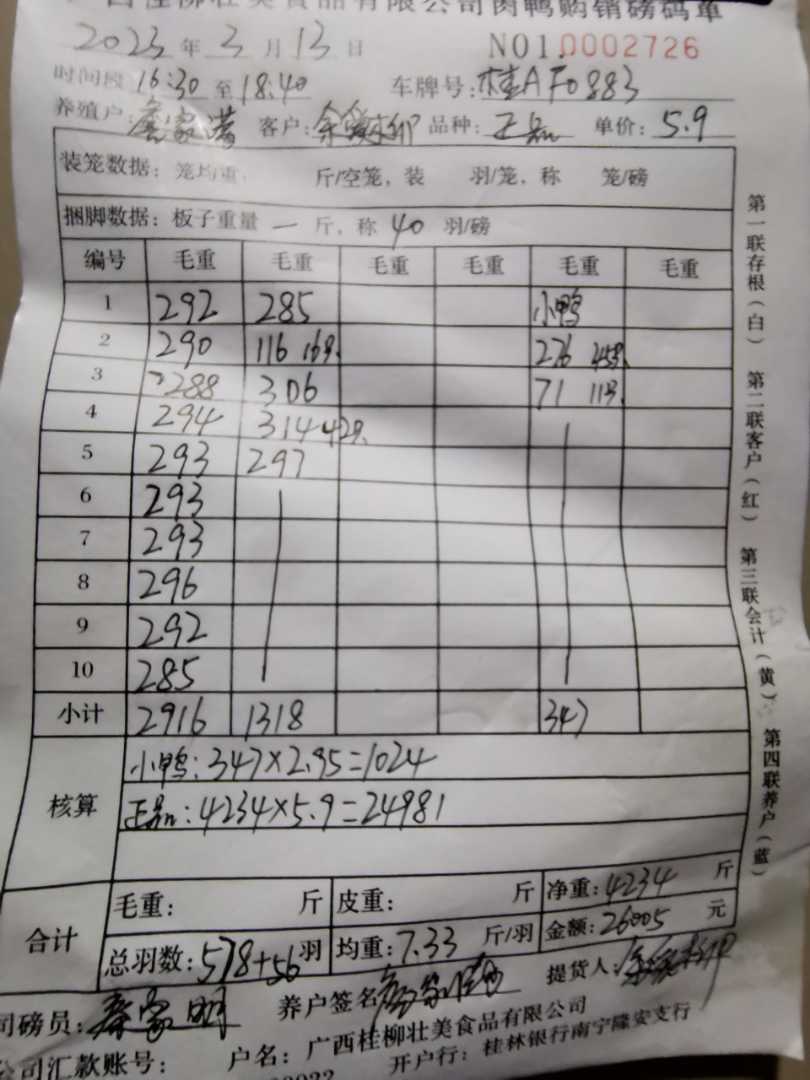 广西桂柳壮美食品有限公司肉鸭购销磅码单
2023年3月13日 NO1.0002726
时间段16:30至18:40 车牌号:桂AF0883
养殖户: 客户: 品种:正品 单价:5.9
装笼数据:笼均重, 斤/空笼,装 羽/笼,称 笼/磅
捆脚数据:板子重量 一 斤,称 40 羽/磅
编号 毛重 毛重 毛重 毛重 毛重 毛重
1 292 285 小鸭
2 290 116 16只 276
3 288 306 71 11只
4 294 314 42只
5 293 297
6 293
7 293
8 296
9 292
10 285
小计 2916 1318 347
核算
小鸭:347×2.95=1024
正品:4234×5.9=24981
合计
毛重: 斤 皮重: 斤 净重:4234 斤
总羽数:578+56羽 均重:7.33 斤/羽 金额:26005 元
司磅员: 养户签名 提货人:
公司汇款账号: 户名:广西桂柳壮美食品有限公司
开户行:桂林银行南宁隆安支行
第一联存根(白) 第二联客户(红) 第三联会计(黄) 第四联养户(蓝)